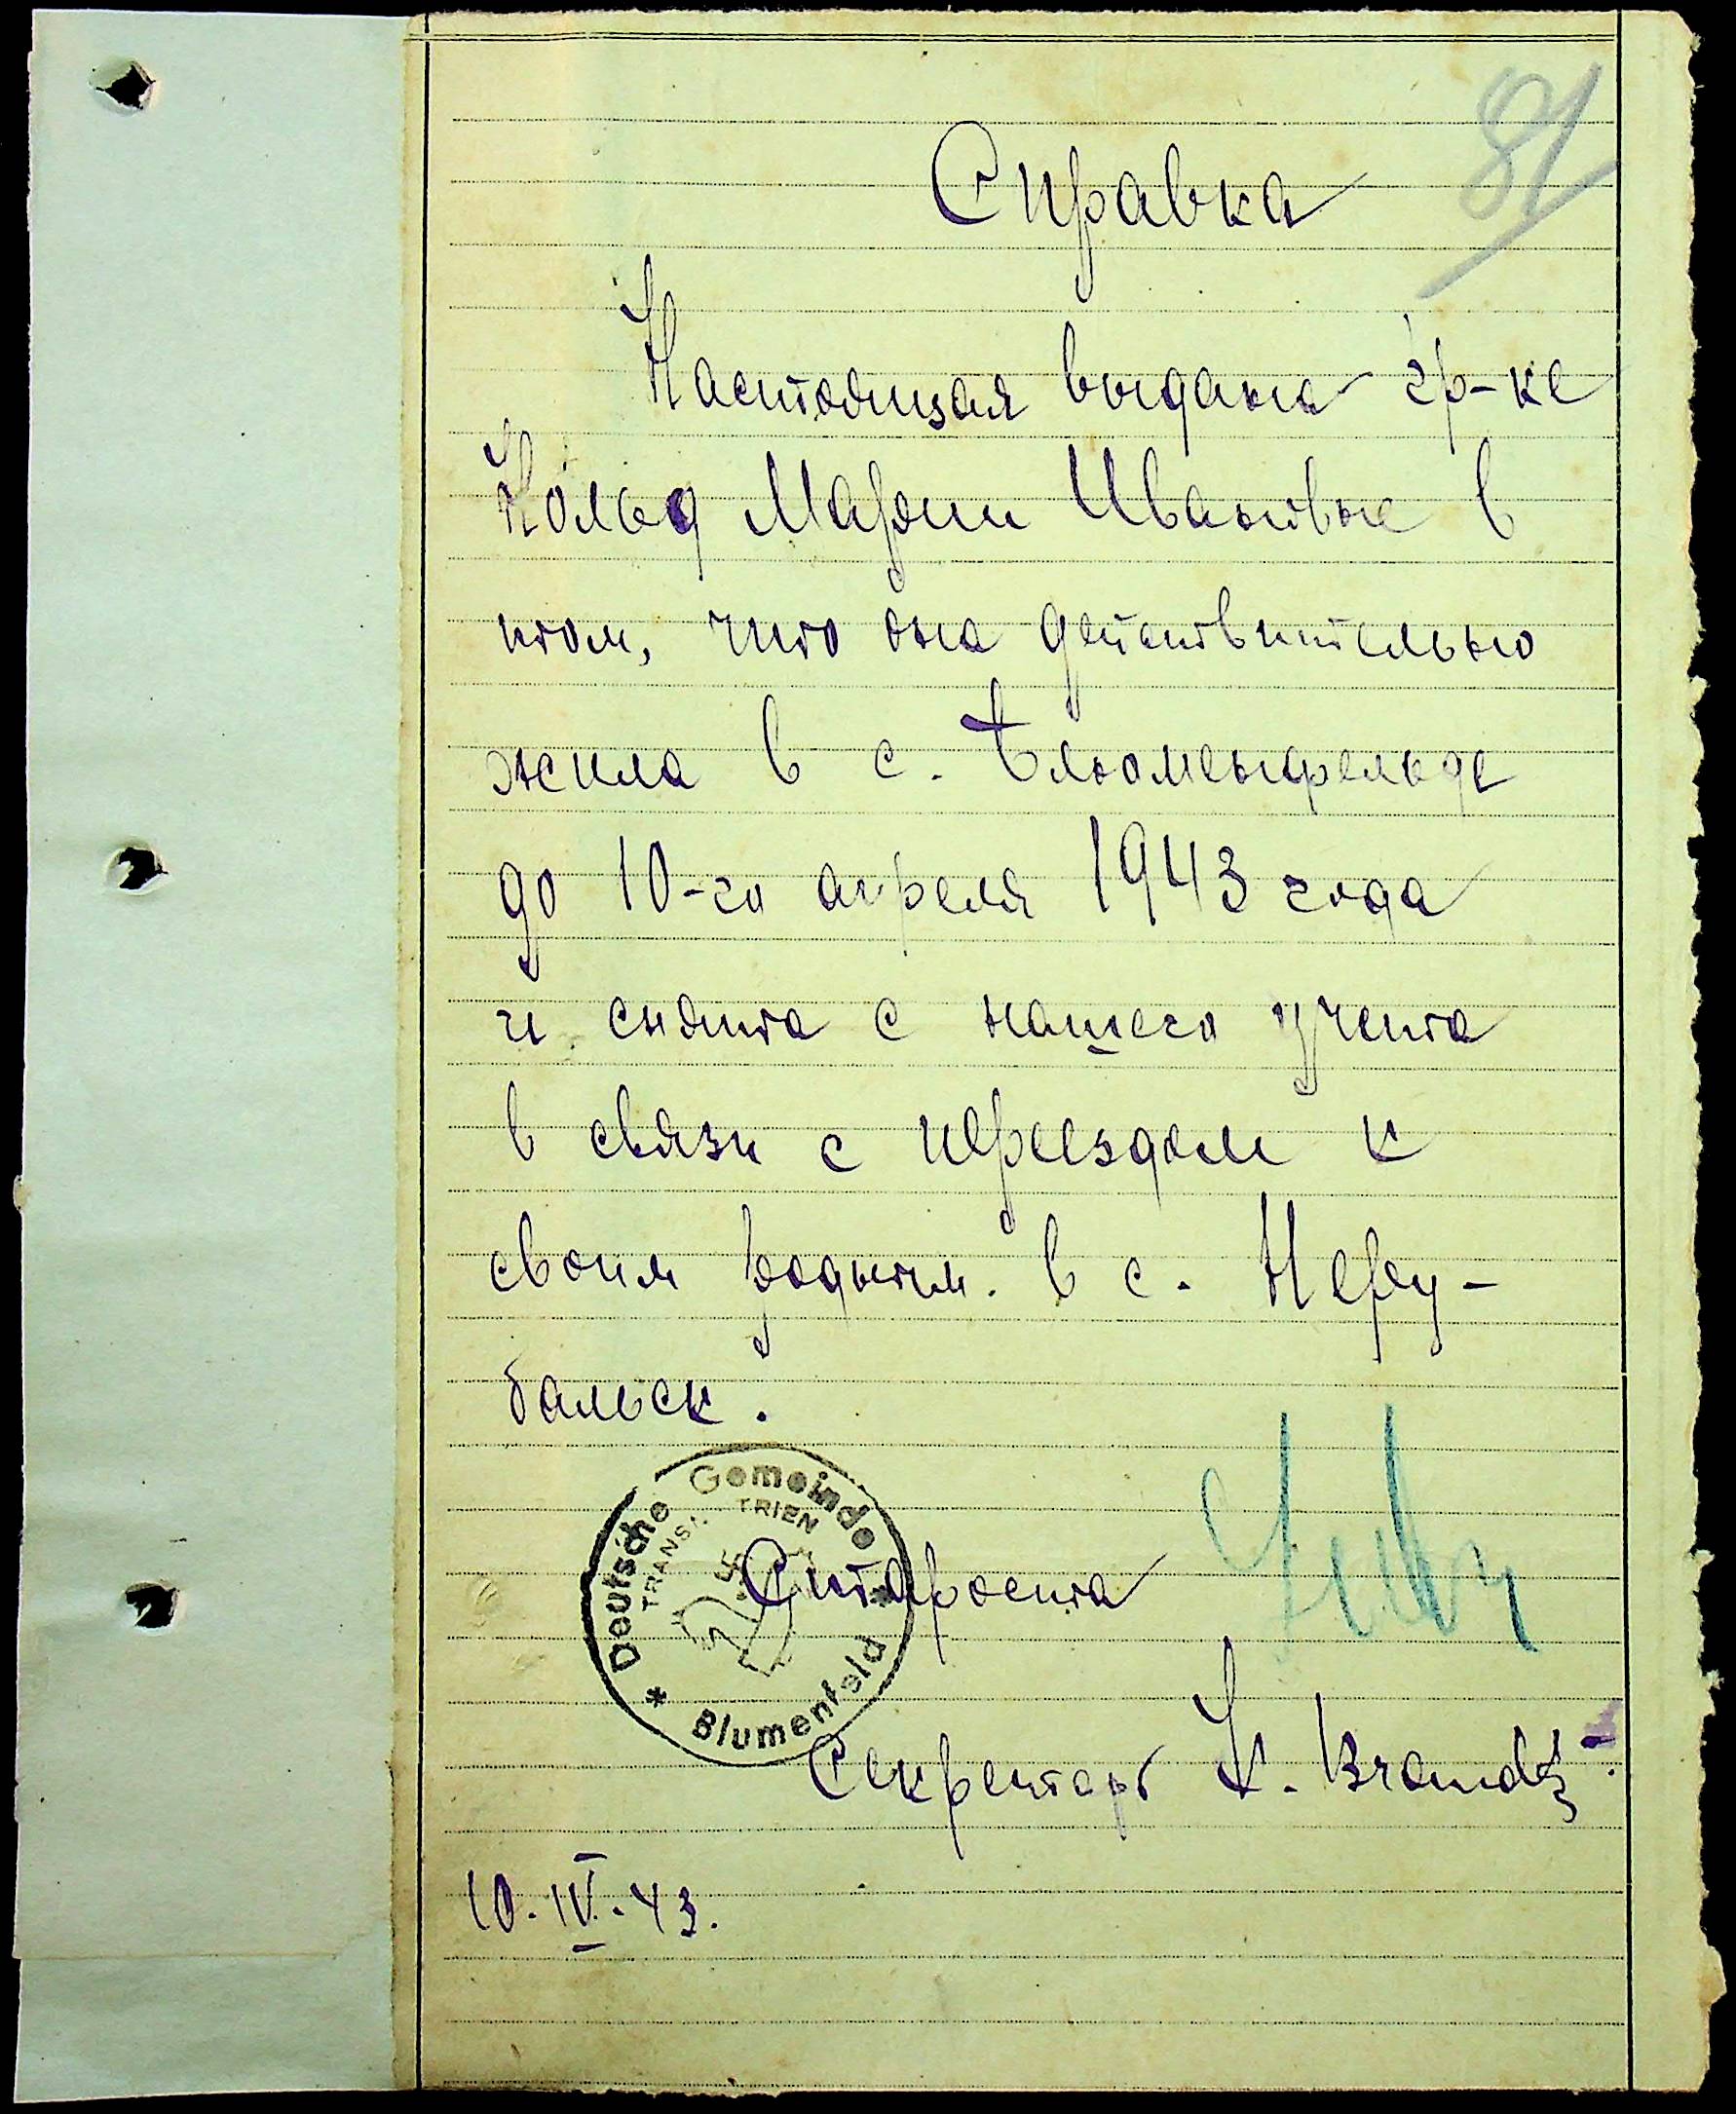 81
Справка
Настоящая выдана гр-ке
Кольд Марии Ивановне в
том, что она действительно
жила в с. Блюменфельде
до 10-го апреля 1943 года
и снята с нашего учета
в связи с переездом к
своим родным. в с. Неру-
бальск.
Deutsche Gemeinde
TRIEN
Староста
* Blumenfeld *
Секретарь K. Brandt
10.IV.43.